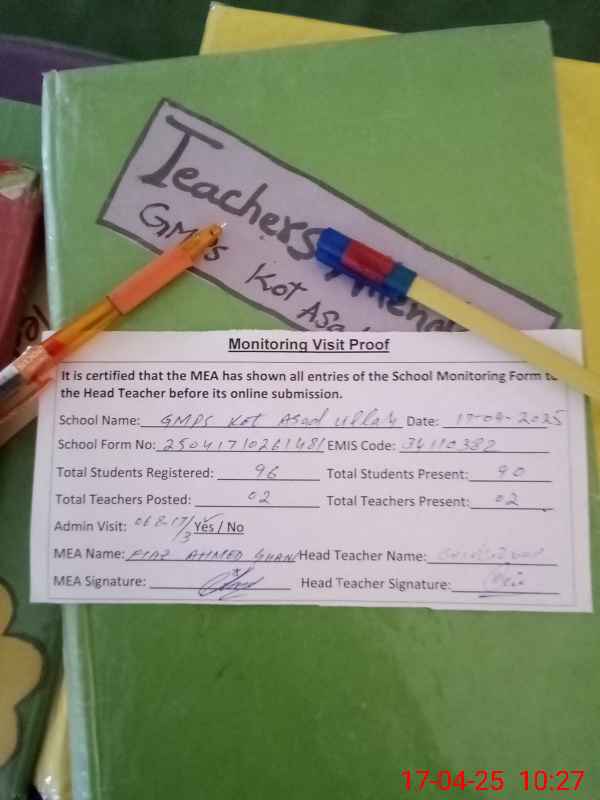 Teachers Attend
GMPS Kot Asad
Monitoring Visit Proof
It is certified that the MEA has shown all entries of the School Monitoring Form to
the Head Teacher before its online submission.
School Name: GMPS Kot Asad Ullah Date: 17-04-2025
School Form No: 25041710261481 EMIS Code: 34110382
Total Students Registered: 96 Total Students Present: 90
Total Teachers Posted: 02 Total Teachers Present: 02
Admin Visit: Yes / No
MEA Name: AHMED Head Teacher Name:
MEA Signature: Head Teacher Signature:
17-04-25 10:27